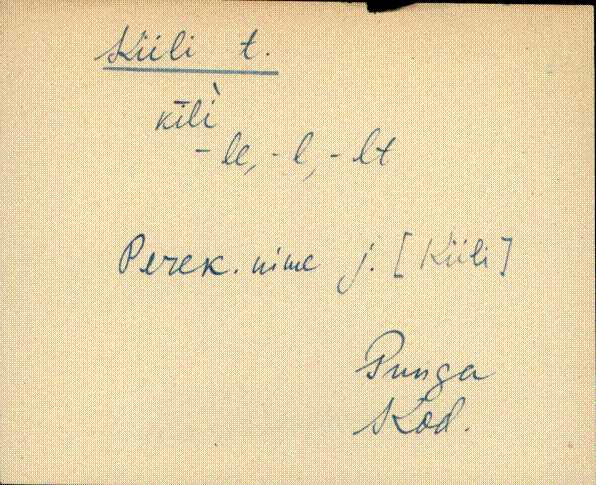 Kiili t.
kīlì
- lle, - l, - lt
Perek. nime j. [Kiili]
Punga
Kod.